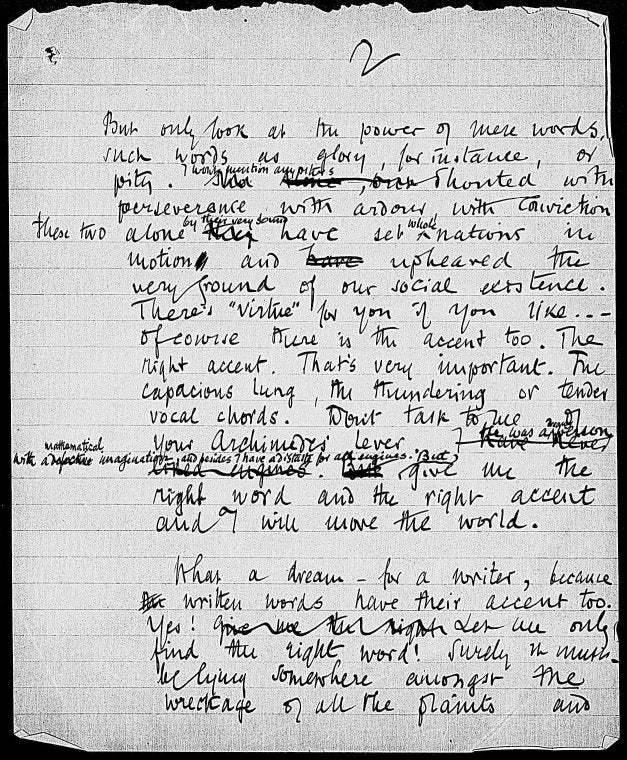 2
But only look at the power of mere words,
such words as glory, for instance, or
pity. I won't mention any others Shouted with
perseverance with ardour with conviction
these two alone by their very sound have set whole nations in
motion and have upheaved the
very ground of our social existence.
There's "virtue" for you if you like...-
Of course there is the accent too. The
right accent. That's very important. The
capacious lung, the thundering or tender
vocal chords. Don't talk to me of
your Archimedes' lever. He was a person
with a mathematical imagination, and besides I have a distaste for all engines. But give me the
right word and the right accent
and I will move the world.
What a dream - for a writer, because
written words have their accent too.
Yes! Give me the right Let me only
find the right word! Surely it must
be lying somewhere amongst the
wreckage of all the plaints and